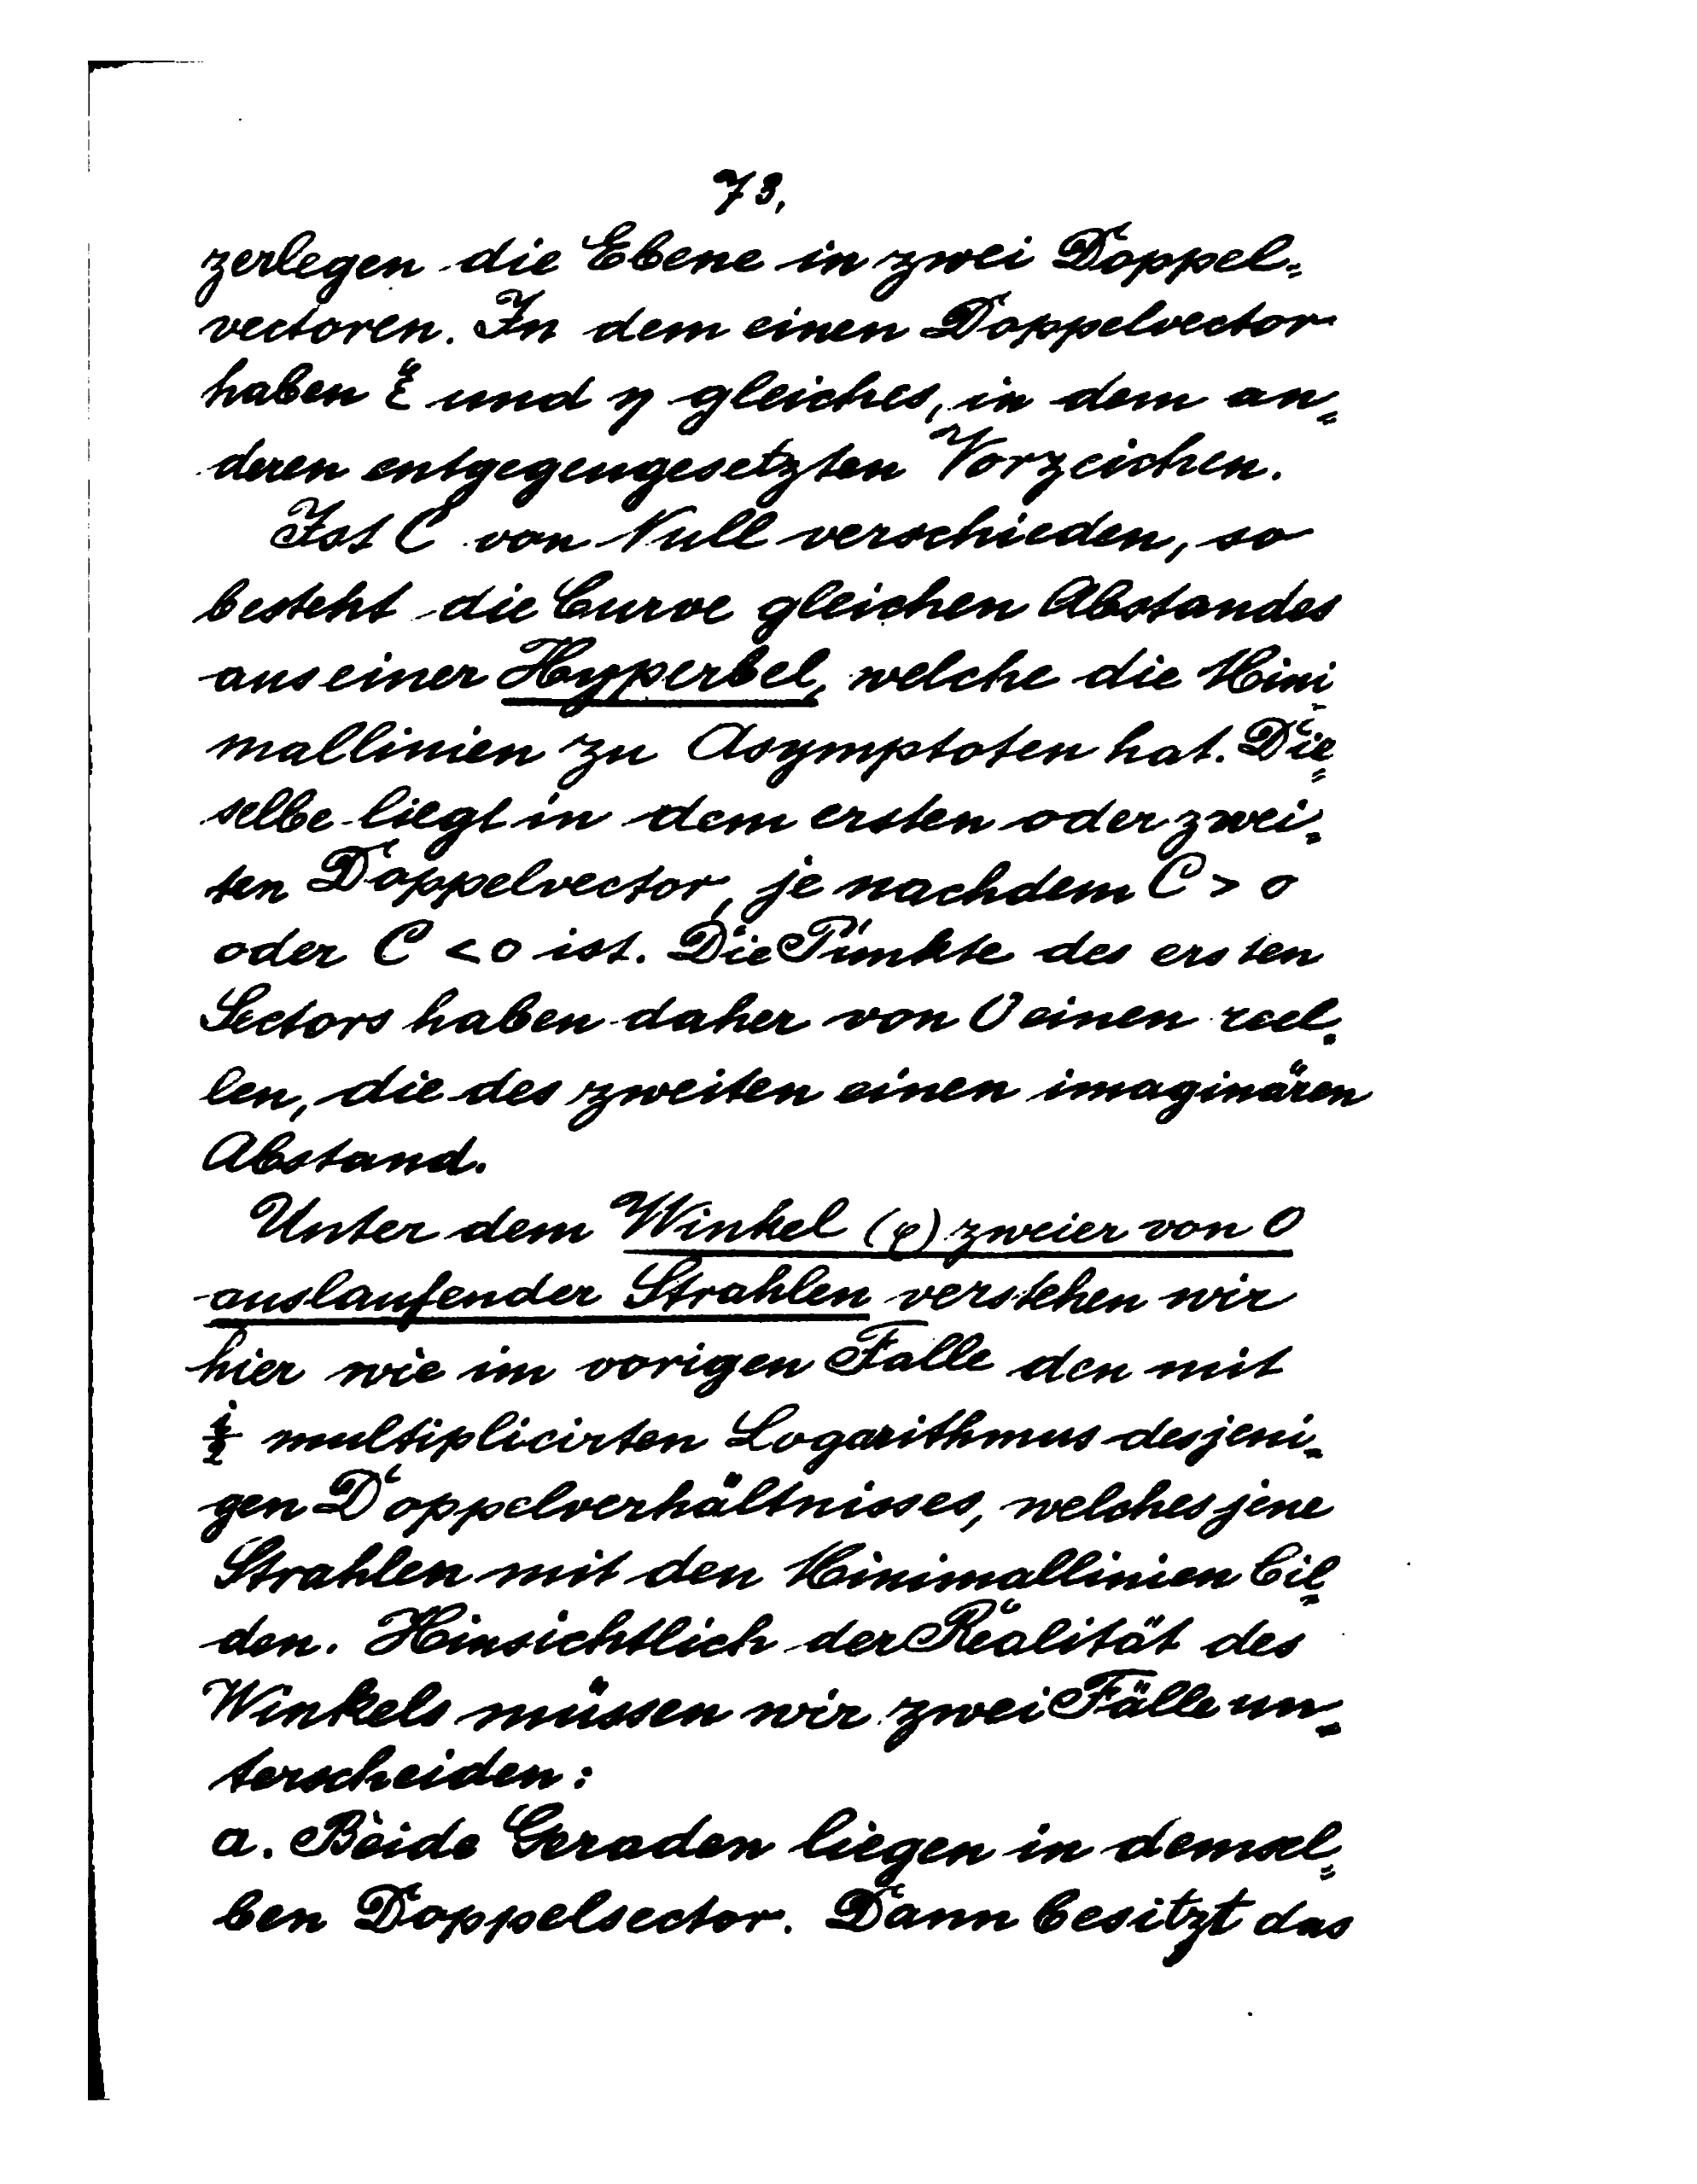 73.
zerlegen die Ebene in zwei Doppel=
vectoren. In dem einen Doppelvector
haben ξ und η gleiches, in dem an=
deren entgegengesetzten Vorzeichen.
Ist C von Null verschieden, so
besteht die Curve gleichen Abstandes
aus einer Hyperbel, welche die Mini-
mallinien zu Asymptoten hat. Die=
selbe liegt in dem ersten oder zwei=
ten Doppelvector, je nachdem C > 0
oder C < 0 ist. Die Punkte des ersten
Sectors haben daher von O einen reel=
len, die des zweiten einen imaginären
Abstand.
Unter dem Winkel (φ) zweier von O
auslaufender Strahlen verstehen wir
hier wie im vorigen Falle den mit
i/2 multiplicirten Logarithmus desjeni=
gen Doppelverhältnisses, welches jene
Strahlen mit den Minimallinien bil=
den. Hinsichtlich der Realität des
Winkels müssen wir zwei Fälle un=
terscheiden:
a. Beide Geraden liegen in demsel=
ben Doppelsector. Dann besitzt das